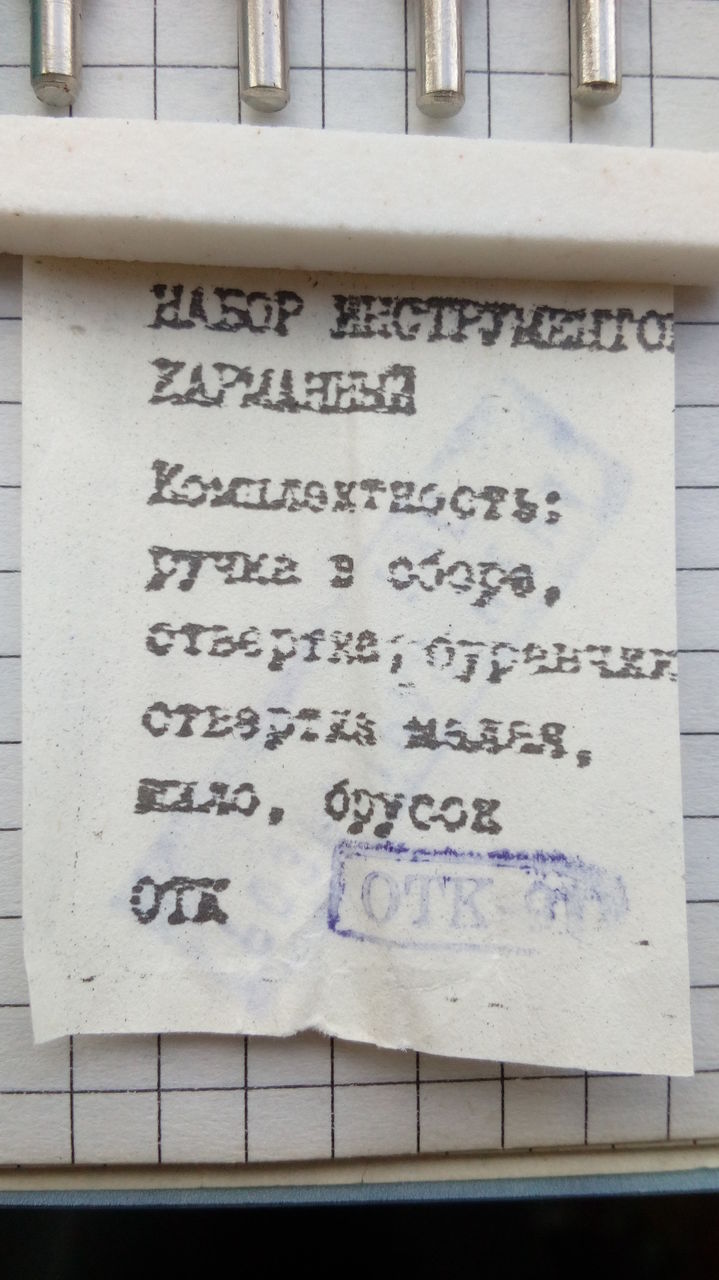 НАБОР ИНСТРУМЕНТОВ
КАРМАННЫЙ
Комплектность:
ручка в сборе,
отвертка, буравчик
отвертка малая,
шило, брусок
ОТК
ОТК